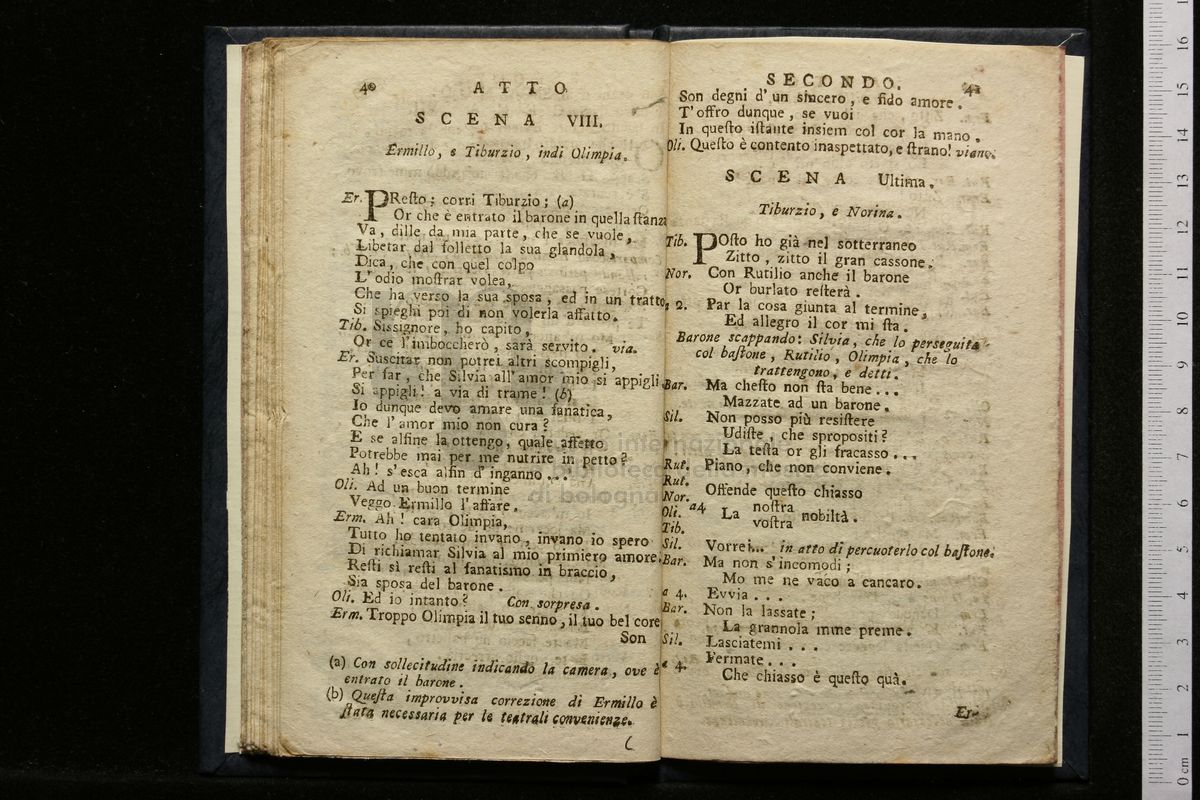 40 ATTO
SCENA VIII.
Ermillo, e Tiburzio, indi Olimpia.
Er. PReſto; corri Tiburzio; (a)
Or che è entrato il barone in quella ſtanza
Va, dille da mia parte, che se vuole,
Liberar dal folletto la sua glandola,
Dica, che con quel colpo
L'odio moſtrar volea,
Che ha verso la sua sposa, ed in un tratto,
Si spieghi poi di non volerla affatto.
Tib. Sissignore, ho capito,
Or ce l'imboccherò, sarà servito. via.
Er. Suscitar non potrei altri scompigli,
Per far, che Silvia all'amor mio si appigli
Si appigli! a via di trame! (b)
Io dunque devo amare una fanatica,
Che l'amor mio non cura?
E se alfine la ottengo, quale affetto
Potrebbe mai per me nutrire in petto?
Ah! s'esca alfin d'inganno...
Oli. Ad un buon termine
Veggo Ermillo l'affare.
Erm. Ah! cara Olimpia,
Tutto ho tentato invano, invano io spero
Di richiamar Silvia al mio primiero amore.
Reſti sì reſti al fanatismo in braccio,
Sia sposa del barone.
Oli. Ed io intanto? Con sorpresa.
Erm. Troppo Olimpia il tuo senno, il tuo bel core
Son
(a) Con sollecitudine indicando la camera, ove è
entrato il barone.
(b) Queſta improvvisa correzione di Ermillo è
ſtata necessaria per le teatrali convenienze.
SECONDO. 41
Son degni d'un sincero, e fido amore.
T'offro dunque, se vuoi
In queſto iſtante insiem col cor la mano.
Oli. Queſto è contento inaspettato, e ſtrano! viano.
SCENA Ultima.
Tiburzio, e Norina.
Tib. POſto ho già nel sotterraneo
Zitto, zitto il gran cassone.
Nor. Con Rutilio anche il barone
Or burlato reſterà.
a 2. Par la cosa giunta al termine,
Ed allegro il cor mi ſta.
Barone scappando: Silvia, che lo perseguita
col baſtone, Rutilio, Olimpia, che lo
trattengono, e detti.
Bar. Ma cheſto non ſta bene...
Mazzate ad un barone.
Sil. Non posso più resiſtere
Udiſte, che spropositi?
La teſta or gli fracasso...
Rut. Piano, che non conviene.
Rut.
Nor. Offende queſto chiasso
Oli. a4 La noſtra
voſtra nobiltà.
Tib.
Sil. Vorrei... in atto di percuoterlo col baſtone.
Bar. Ma non s'incomodi;
Mo me ne vaco a cancaro.
a 4. Evvia...
Bar. Non la lassate;
La grannola mme preme.
Sil. Lasciatemi...
a 4. Fermate...
Che chiasso è queſto quà.
Er-
internazionale
biblioteca della musica
di bologna
0 cm 1 2 3 4 5 6 7 8 9 10 11 12 13 14 15 16